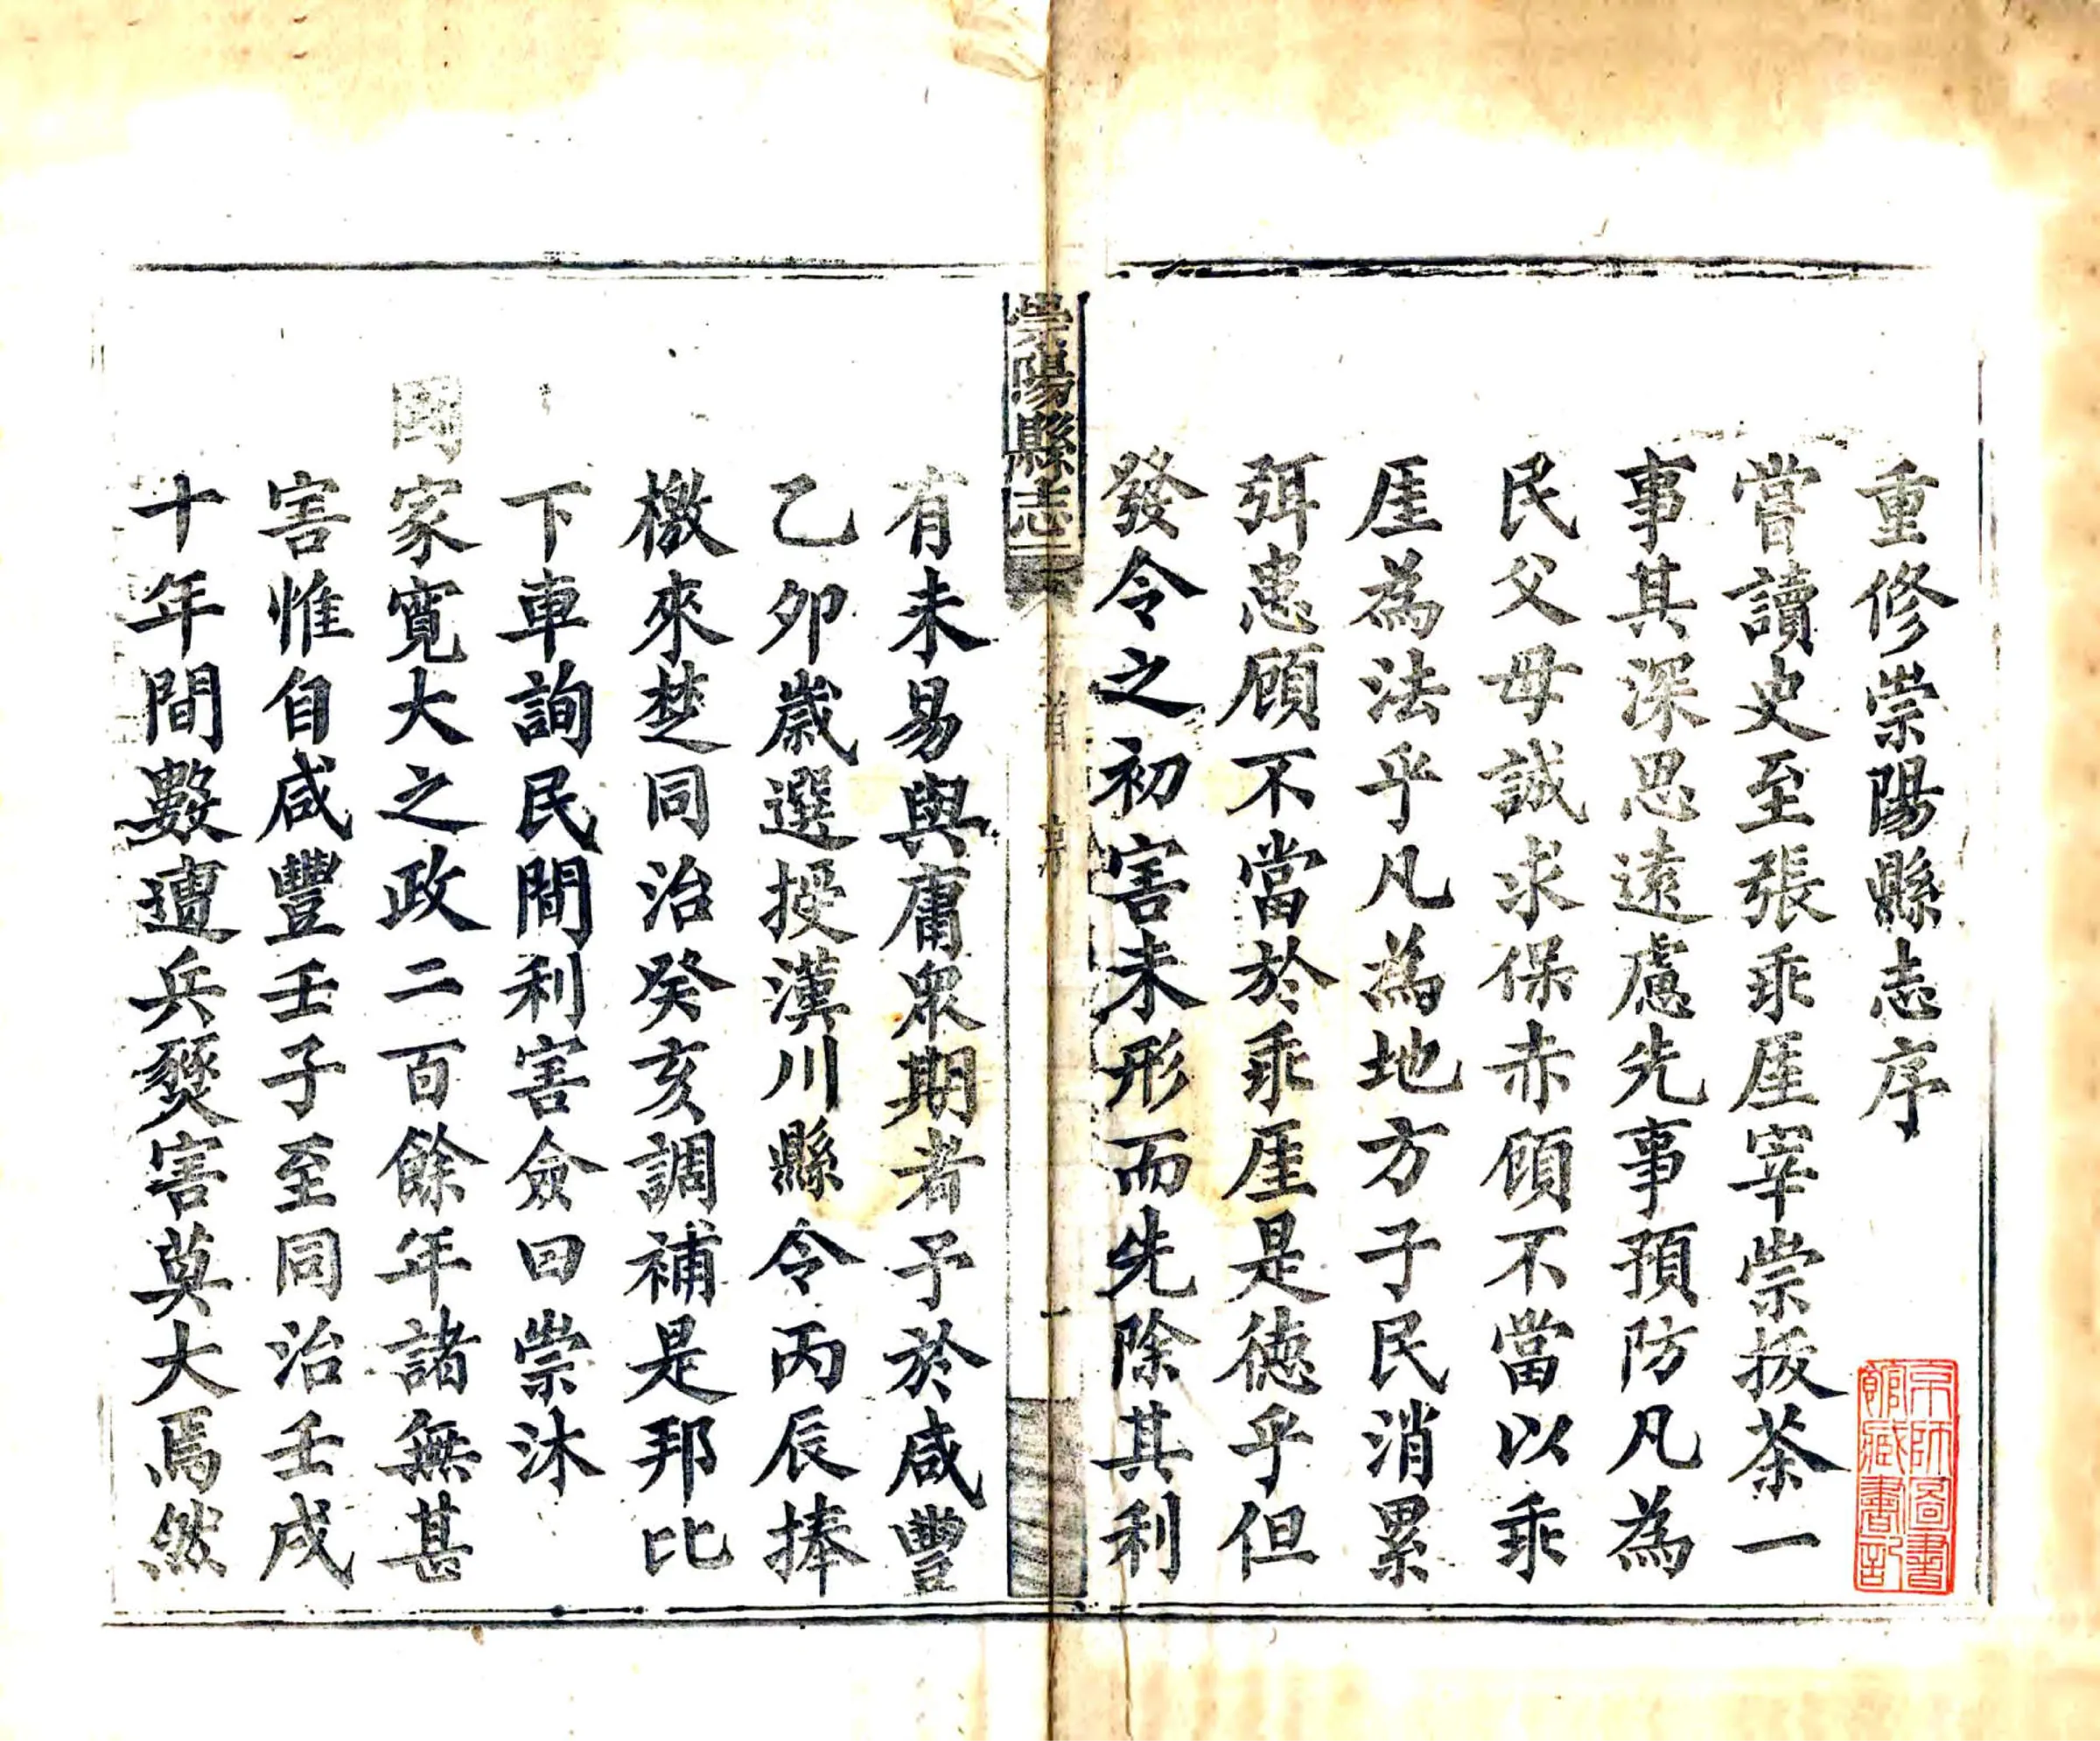 重修崇陽縣志序
嘗讀史至張乖厓宰崇拔茶一
事其深思遠慮先事預防凡為
民父母誠求保赤顧不當以乖
厓為法乎凡為地方子民消累
弭患顧不當於乖厓是德乎但
發令之初害未形而先除其利
崇陽縣志
首
序
一
有未易與庸眾期者予於咸豐
乙卯歲選授漢川縣令丙辰捧
檄來楚同治癸亥調補是邦比
下車詢民間利害僉曰崇沐
國家寬大之政二百餘年諸無甚
害惟自咸豐壬子至同治壬戌
十年間數遭兵燹害莫大焉然
京師圖書
館藏書記